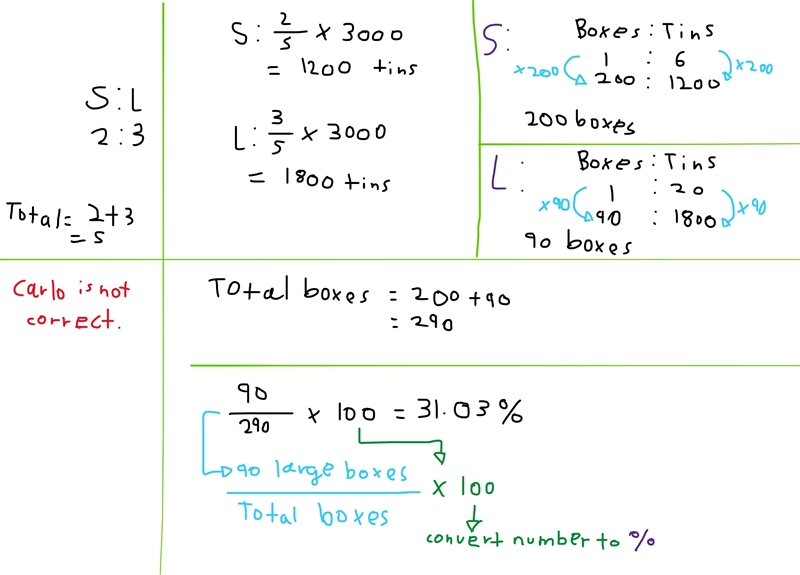 S:L
2:3
Total= 2+3
= 5
S: 2/5 × 3000
= 1200 tins
L: 3/5 × 3000
= 1800 tins
S:
Boxes: Tins
1 : 6
×200
200 : 1200
×200
200 boxes
L:
Boxes: Tins
1 : 20
×90
90 : 1800
×90
90 boxes
Carlo is not
correct.
Total boxes = 200 + 90
= 290
90/290 × 100 = 31.03%
90 large boxes
Total boxes
× 100
convert number to %